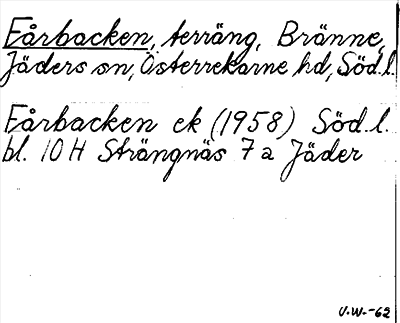 Fårbacken, terräng, Bränne,
Jäders sn, Österrekarne hd, Söd.l.
Fårbacken ek (1958) Söd.l.
bl. 10 H Strängnäs 7 a Jäder
V.W.-62